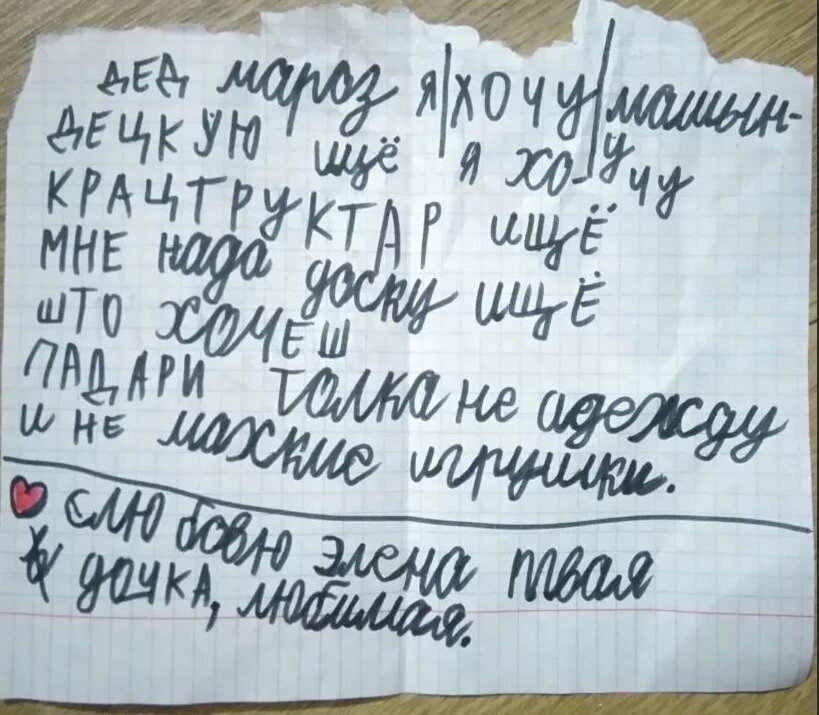 ДЕД мароз я хочу машын-
ДЕЦКУЮ ищё я хо- у чу
КРАЦТРУКТАР ищЁ
МНЕ нада доску ищЁ
што хочЕш
ПАДАРИ толка не адежду
и не махские игрушки.
слюбовю элена твая
дочка, любимая.